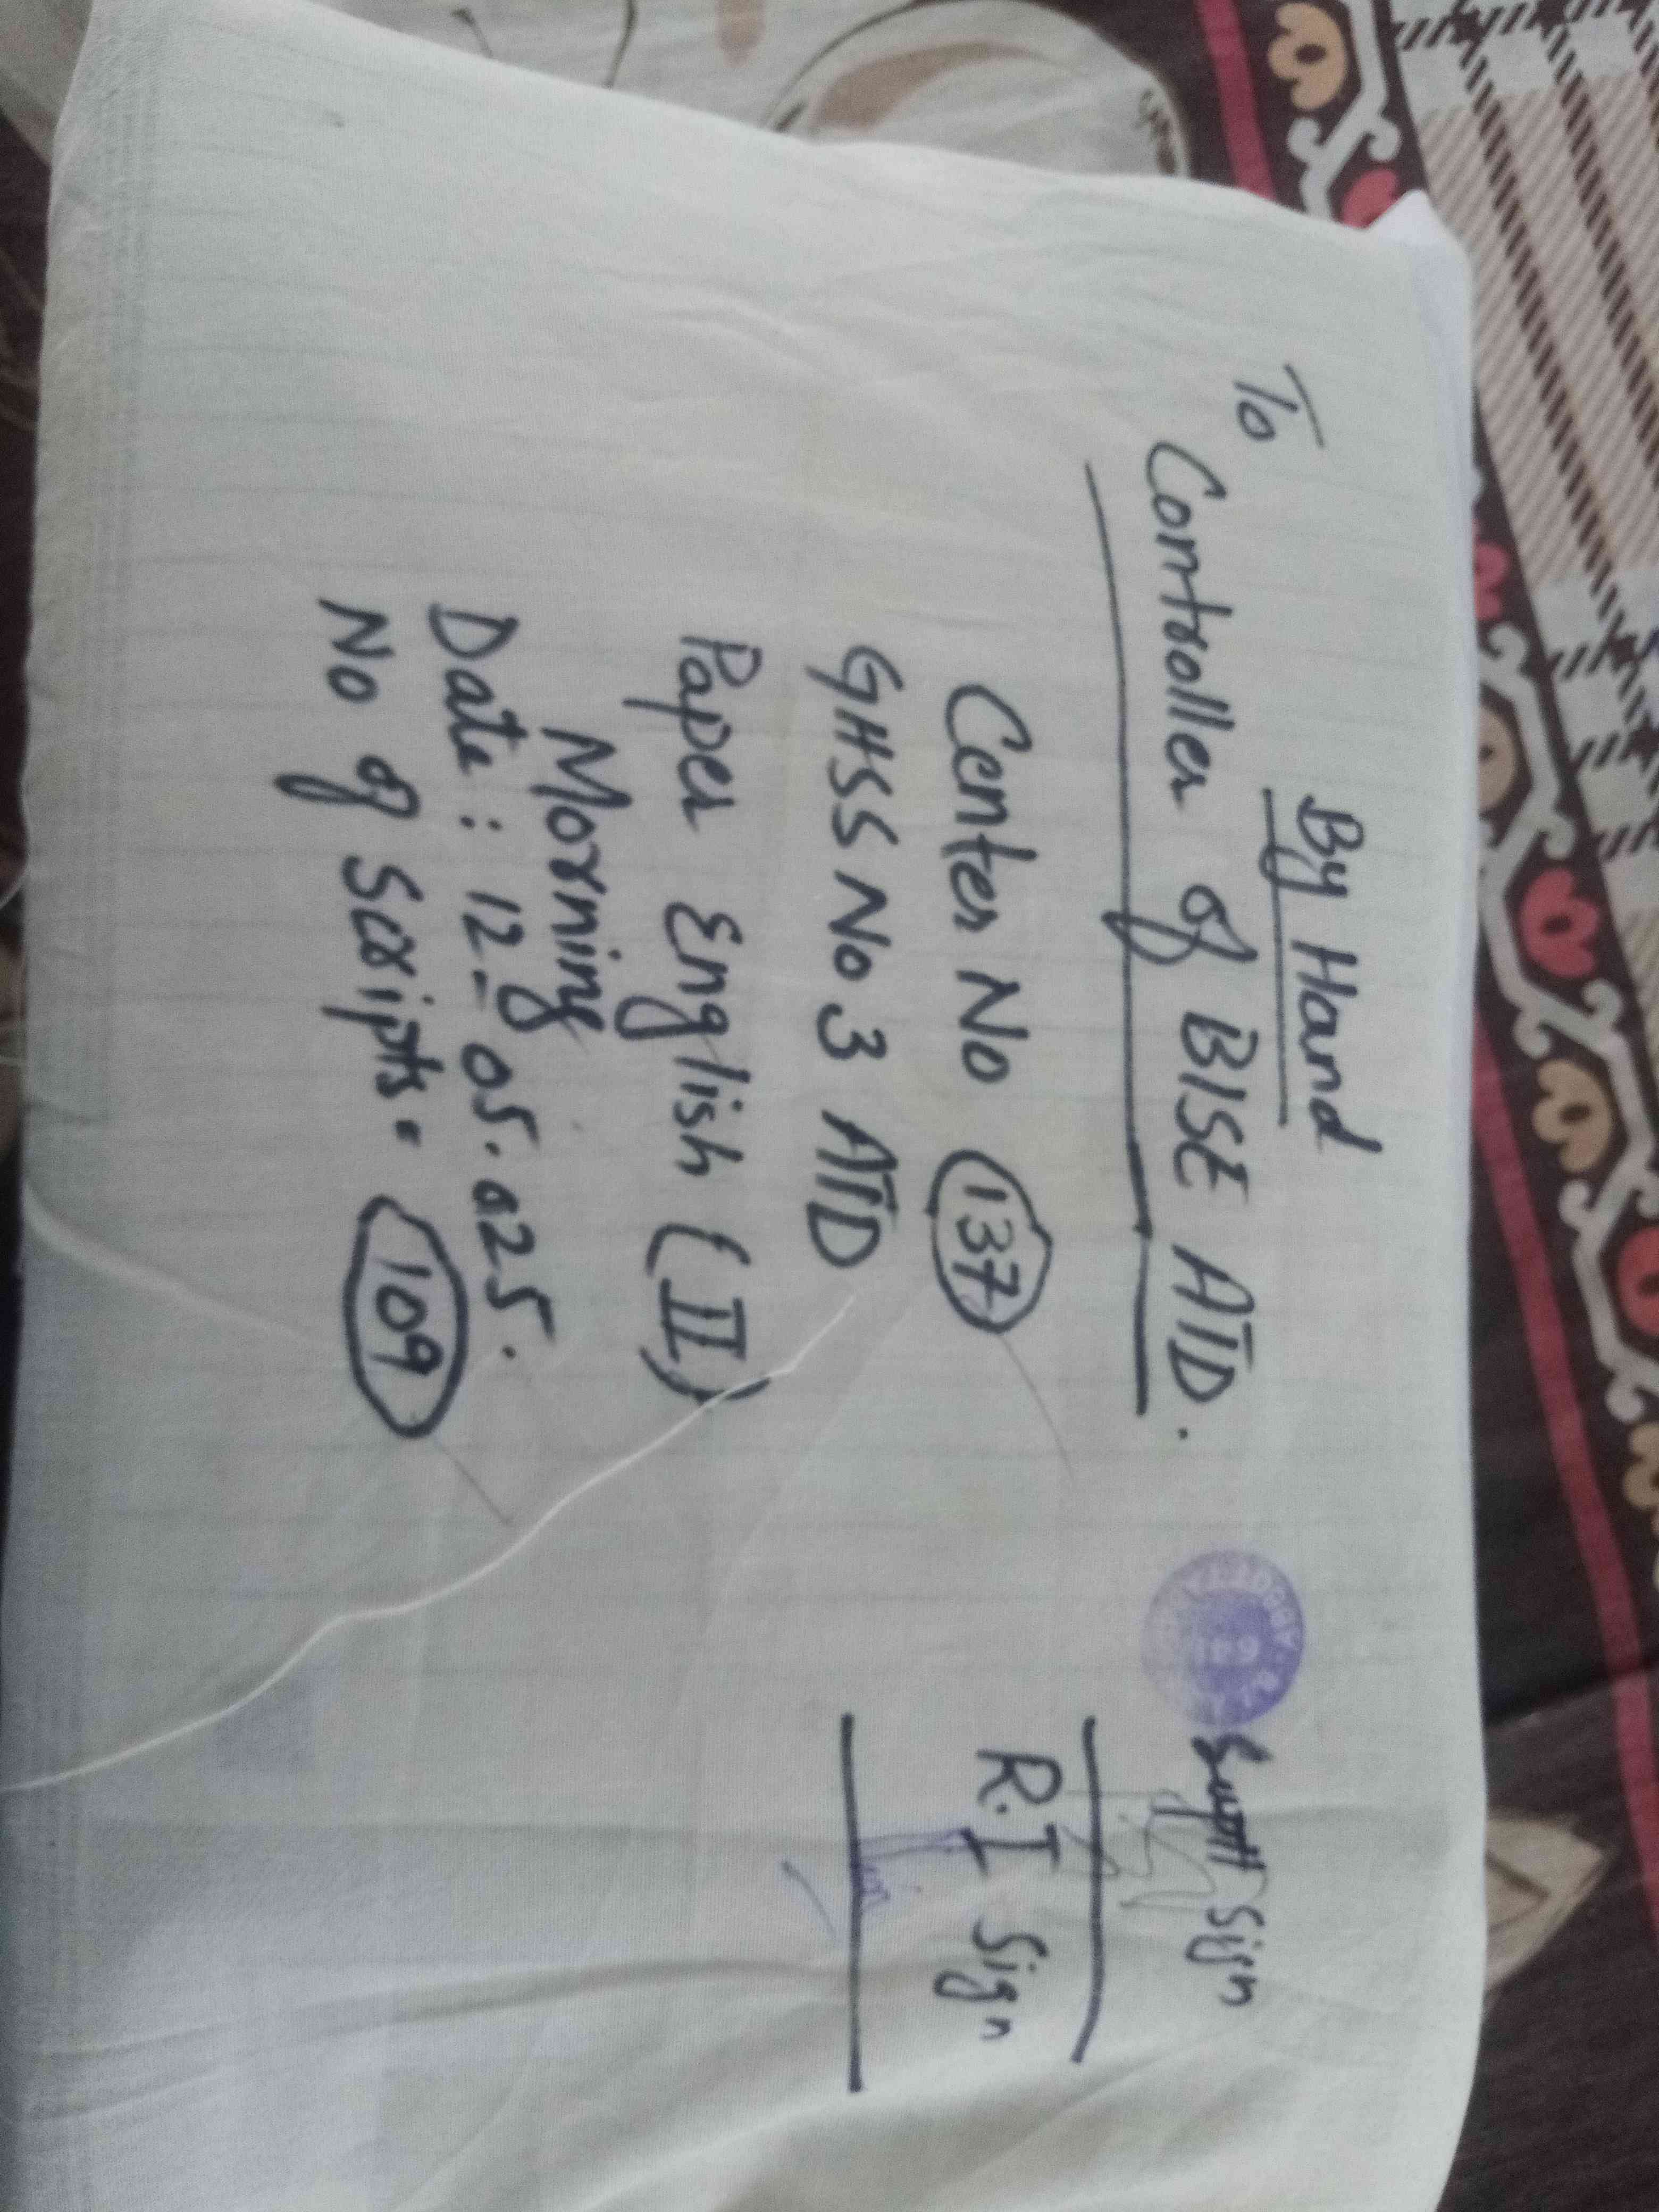 By Hand
To
Controller of BISE ATD.
Center No 137
GHSS No 3 ATD
Paper English (II)
Morning
Date: 12-05.025.
No of Scripts. 109
Suptt Sign
R.I Sign